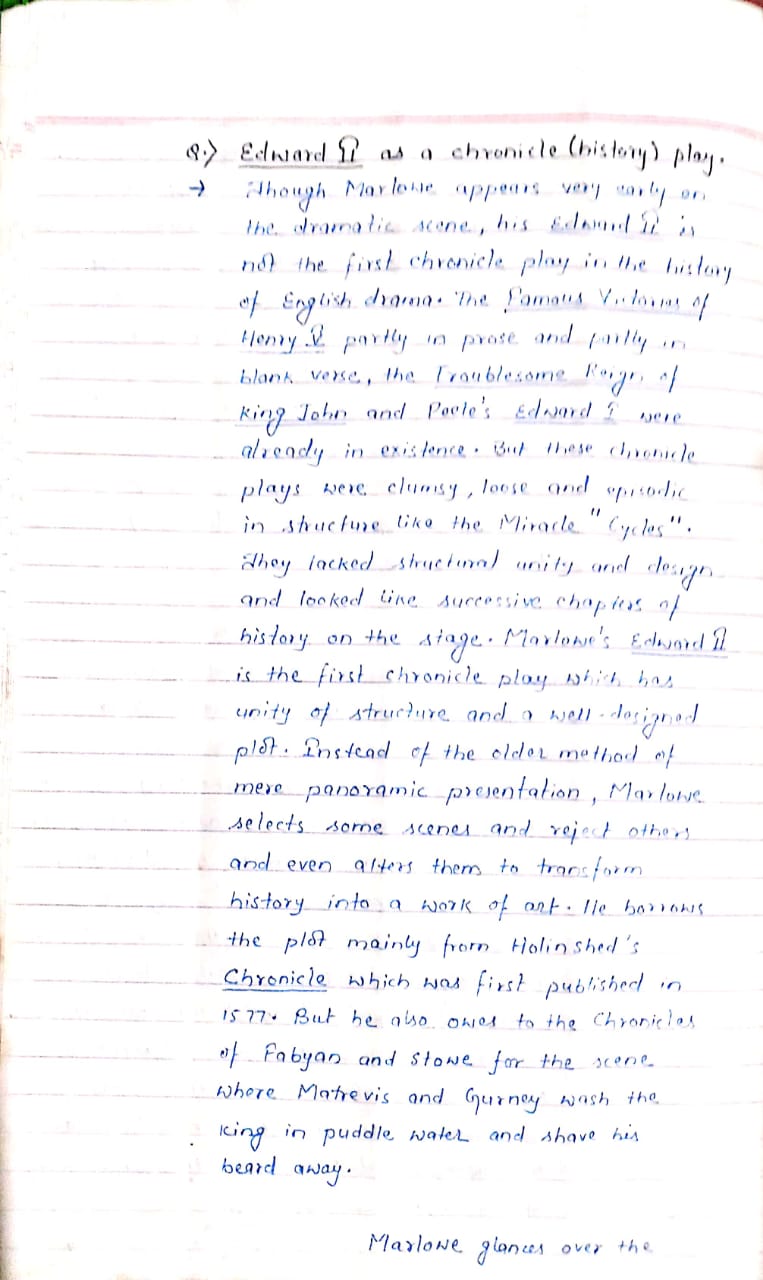 Q.) Edward II as a chronicle (history) play.
→ Though Marlowe appears very early on
the dramatic scene, his Edward II is
not the first chronicle play in the history
of English drama. The Famous Victories of
Henry V partly in prose and partly in
blank verse, the Troublesome Reign of
King John and Peele's Edward I were
already in existence. But these chronicle
plays were clumsy, loose and episodic
in structure like the Miracle "Cycles".
They lacked structural unity and design
and looked like successive chapters of
history on the stage. Marlowe's Edward II
is the first chronicle play which has
unity of structure and a well-designed
plot. Instead of the older method of
mere panoramic presentation, Marlowe
selects some scenes and reject others
and even alters them to transform
history into a work of art. He borrows
the plot mainly from Holinshed's
Chronicle which was first published in
1577. But he also owes to the Chronicles
of Fabyan and Stowe for the scene
where Matrevis and Gurney wash the
king in puddle water and shave his
beard away.
Marlowe glances over the